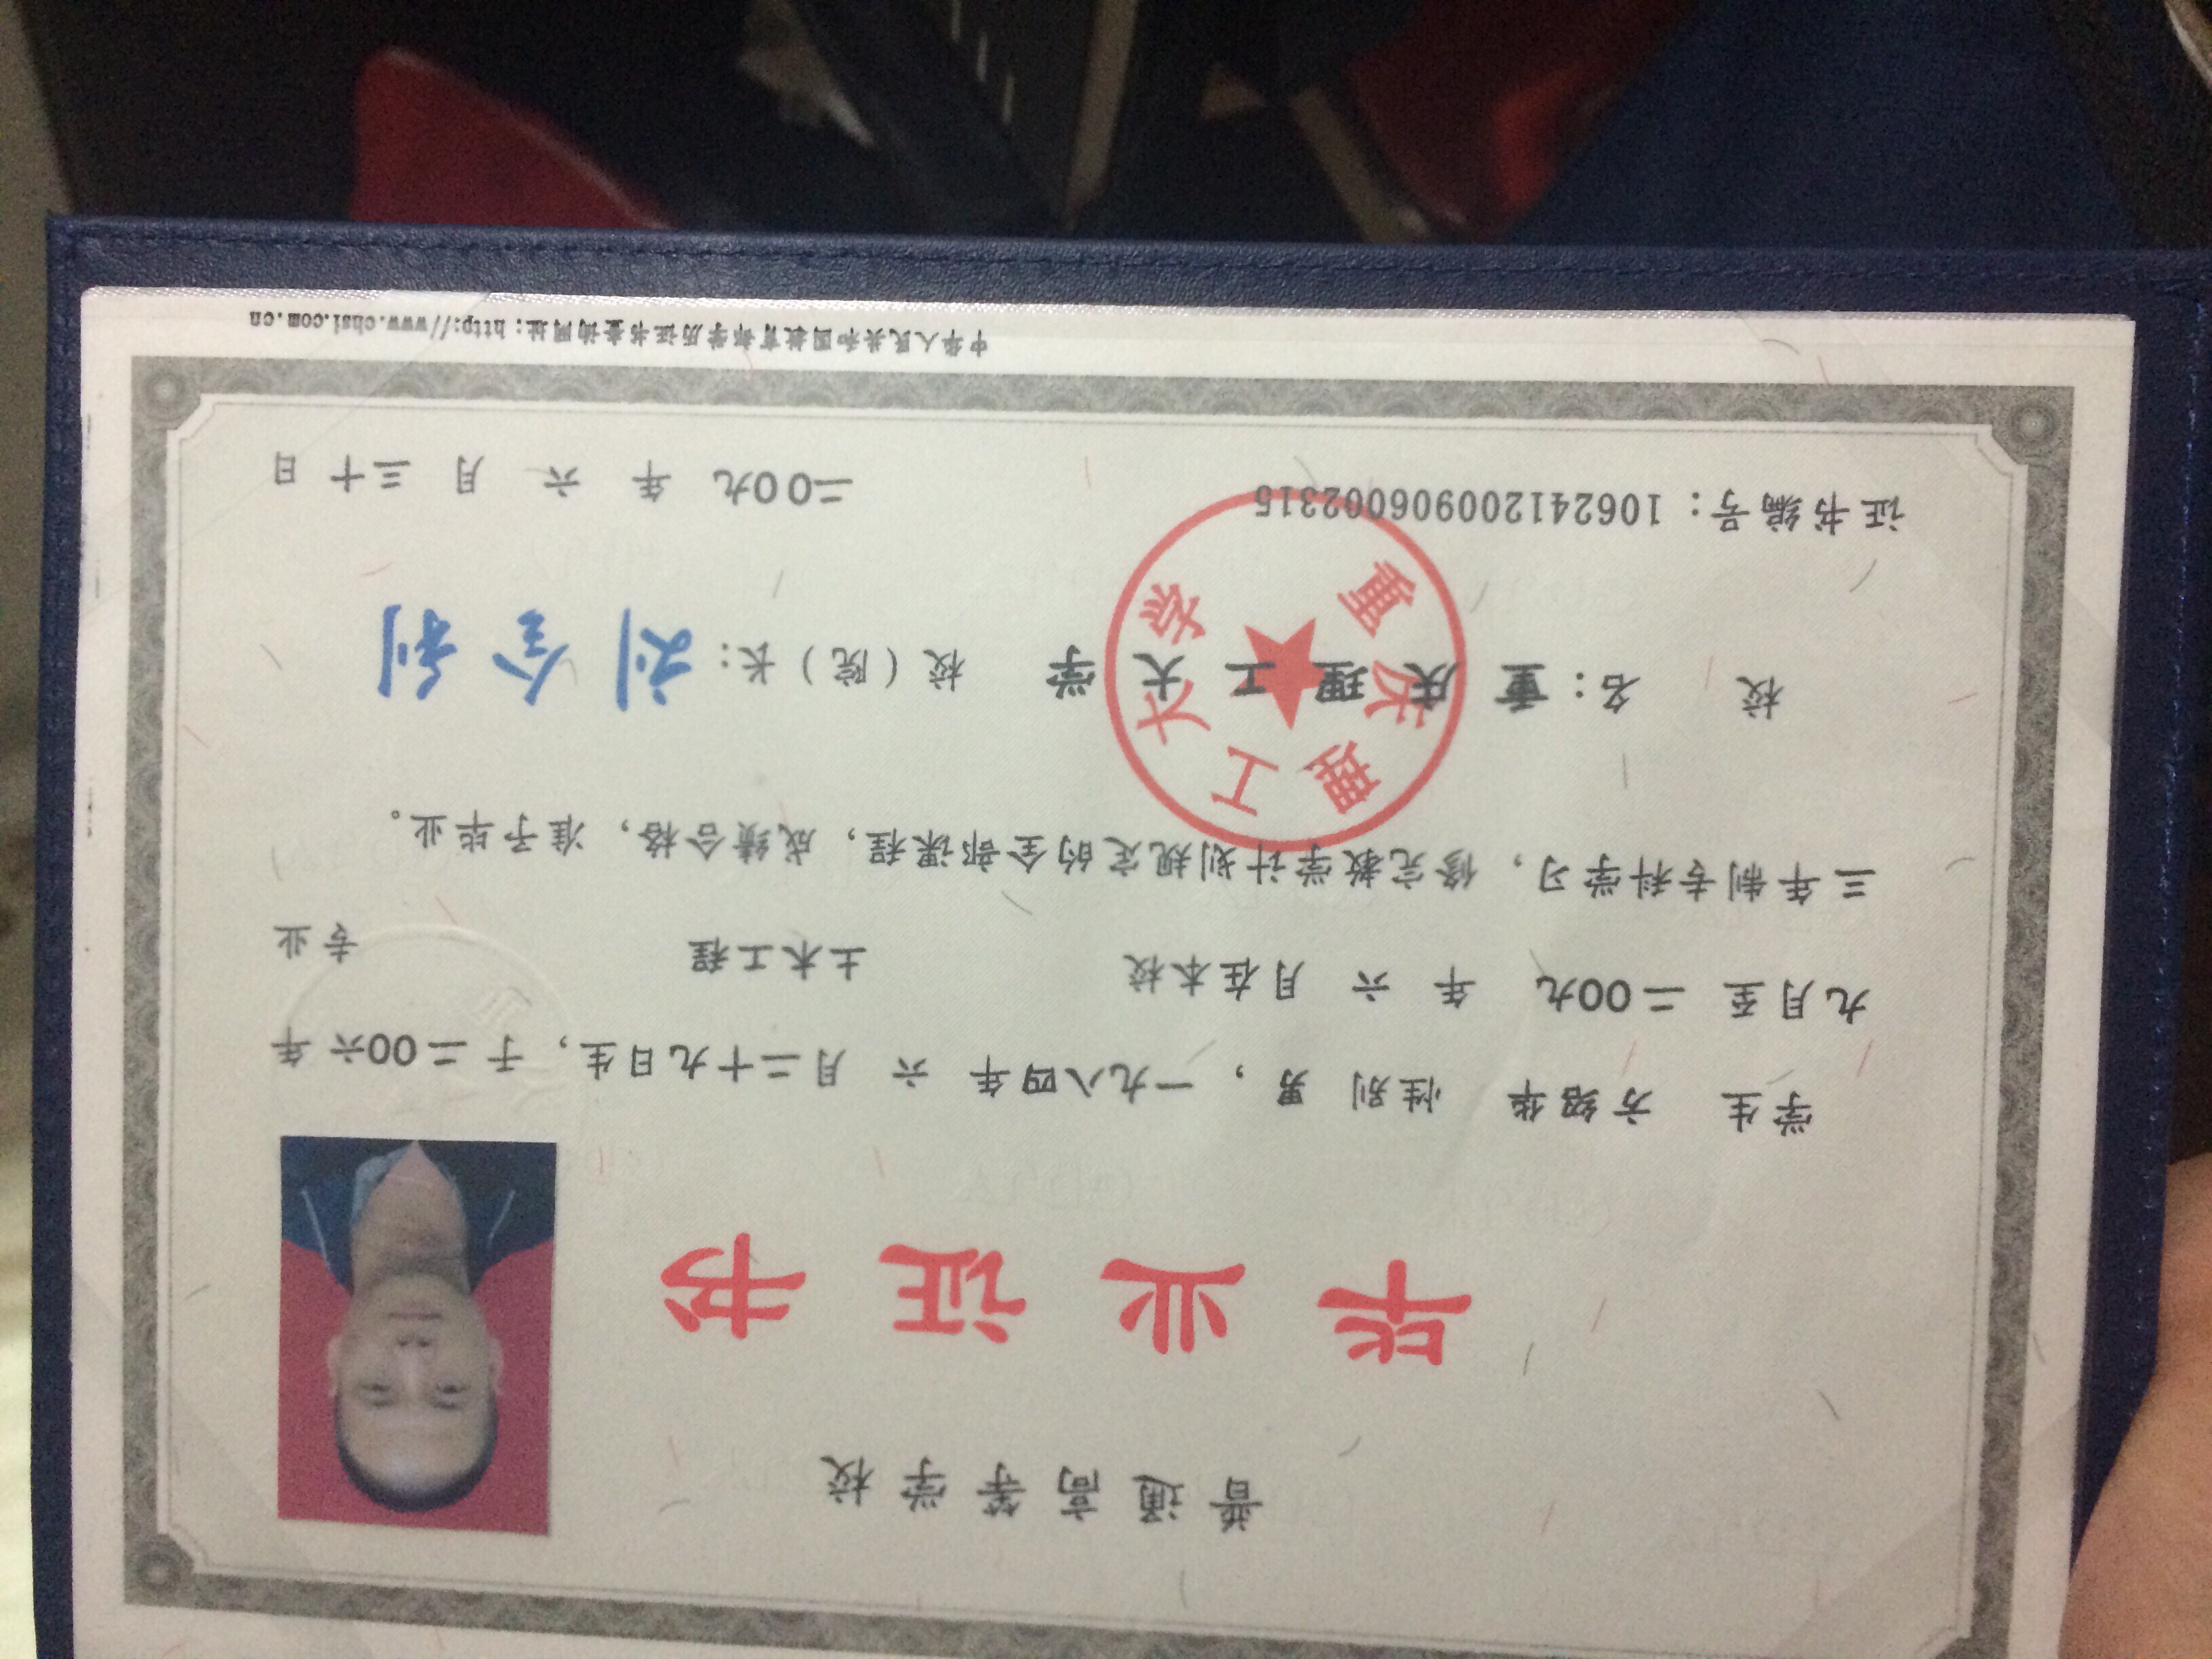 普通高等学校
毕业证书
学生 方绍华 性别 男，一九八四年 六 月二十九日生，于二00六年
九月至 二00九 年 六 月在本校 土木工程 专业
三年制专科学习，修完教学计划规定的全部课程，成绩合格，准予毕业。
校 名：重庆理工大学 校（院）长：刘全利
重庆理工大学
证书编号：106241200906002315 二00九 年 六 月 三十 日
中华人民共和国教育部学历证书查询网址：http://www.chsi.com.cn